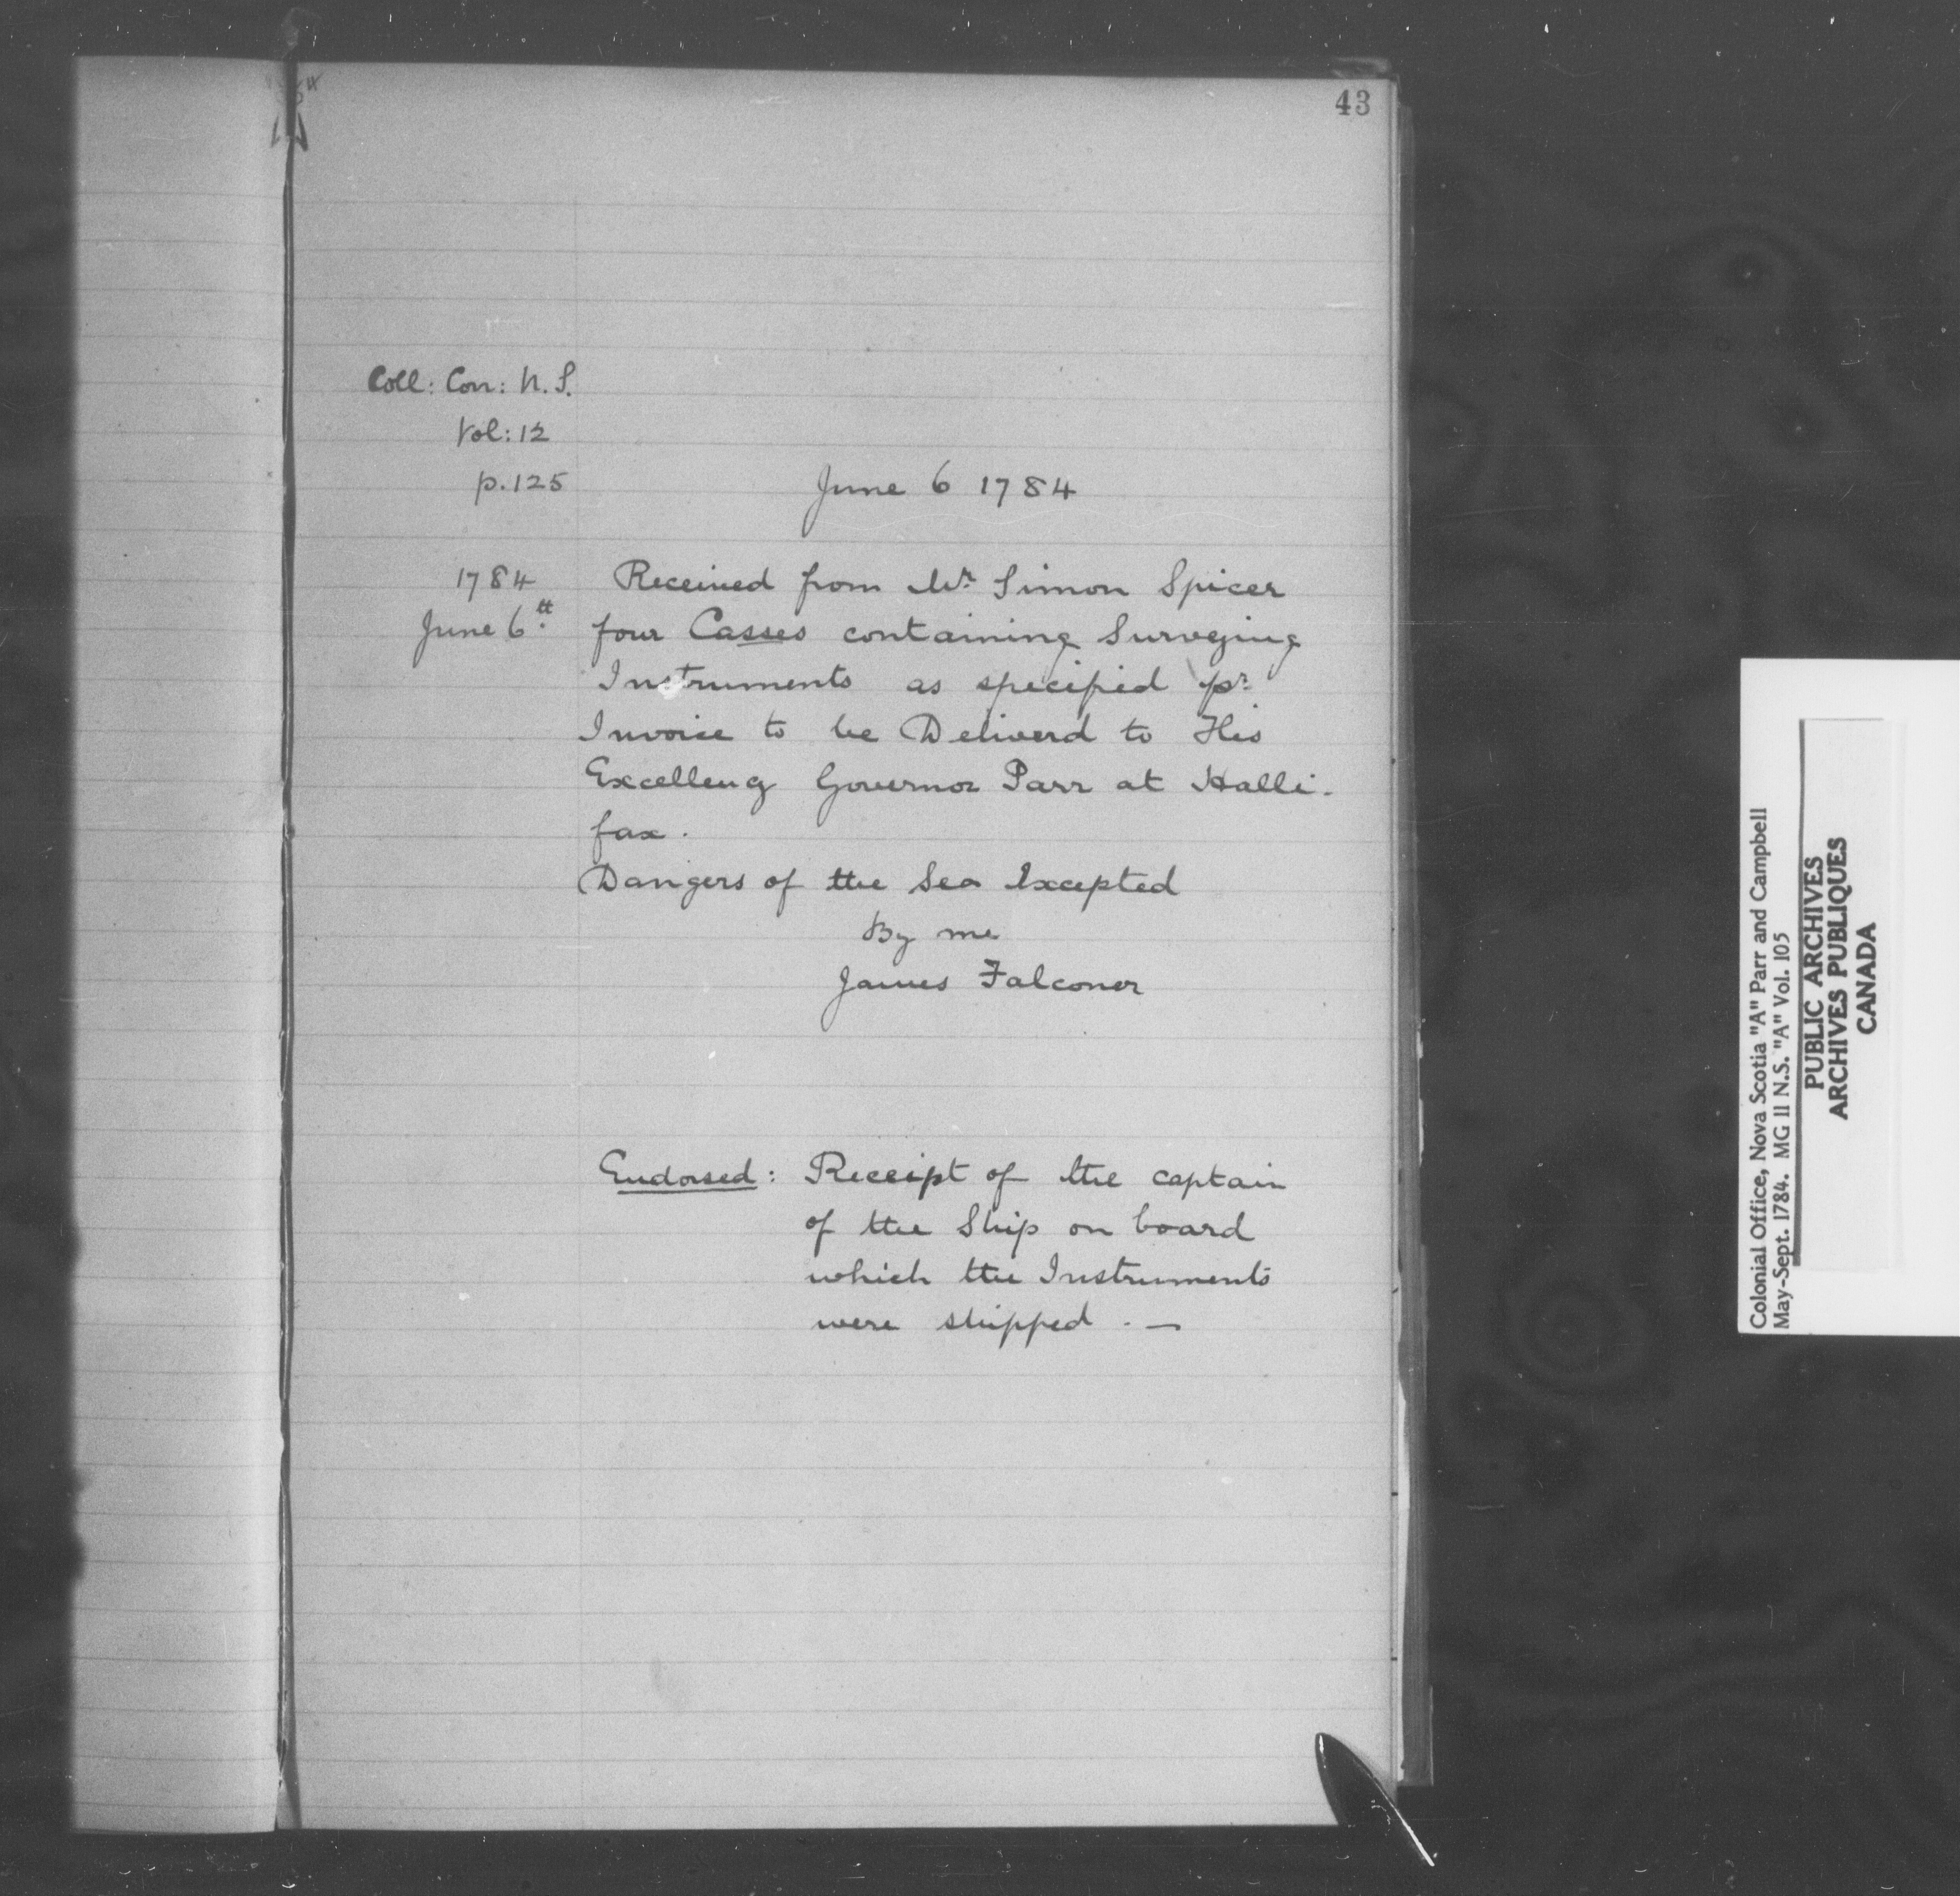 43
Coll: Corr: N.S.
Vol: 12
p. 125
June 6 1784
1784
June 6th.
Received from Mr. Simon Spicer
four Casses containing Surveying
Instruments as specified pr.
Invoice to be Deliverd to His
Excellency Governor Parr at Halli-
fax.
Dangers of the Sea Excepted
By me
James Falconer
Endorsed: Receipt of the captain
of the Ship on board
which the Instruments
were shipped. —
Colonial Office, Nova Scotia "A" Parr and Campbell
May-Sept. 1784. MG 11 N.S. "A" Vol. 105
PUBLIC ARCHIVES
ARCHIVES PUBLIQUES
CANADA